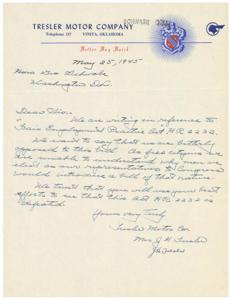 TRESLER MOTOR COMPANY
Telephone 147 VINITA, OKLAHOMA
Better Buy Buick
May 25, 1945
Hon. Geo Schwabe
Washington D.C.
Dear Sir:
We are writing in reference to
Fair Employment Practice Act H.R. 2232.
We want to say that we are bitterly
opposed to this bill. As free citizens we
are unable to understand why men we
elect as our representatives to Congress
would introduce a bill of that nature.
We trust that you will use your best
efforts to see that this Act H.R. 2232 is
defeated.
Yours very truly
Tresler Motor Co.
Mrs. J. H. Tresler
J H Tresler